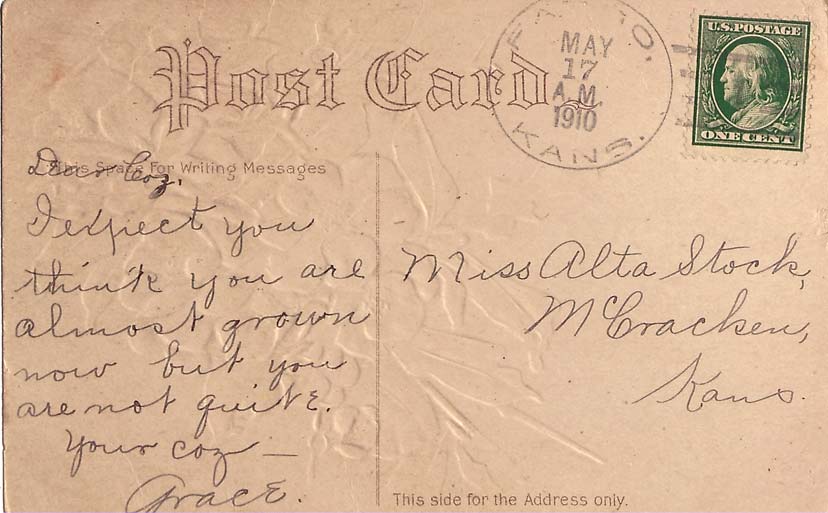 Post Card
MAY
17
A.M.
1910
KANS.
U.S. POSTAGE
ONE CENT
This Space For Writing Messages
Dear Coz.
I expect you
think you are
almost grown
now but you
are not quite.
Your coz —
Grace.
Miss Alta Stock,
McCracken,
Kans.
This side for the Address only.